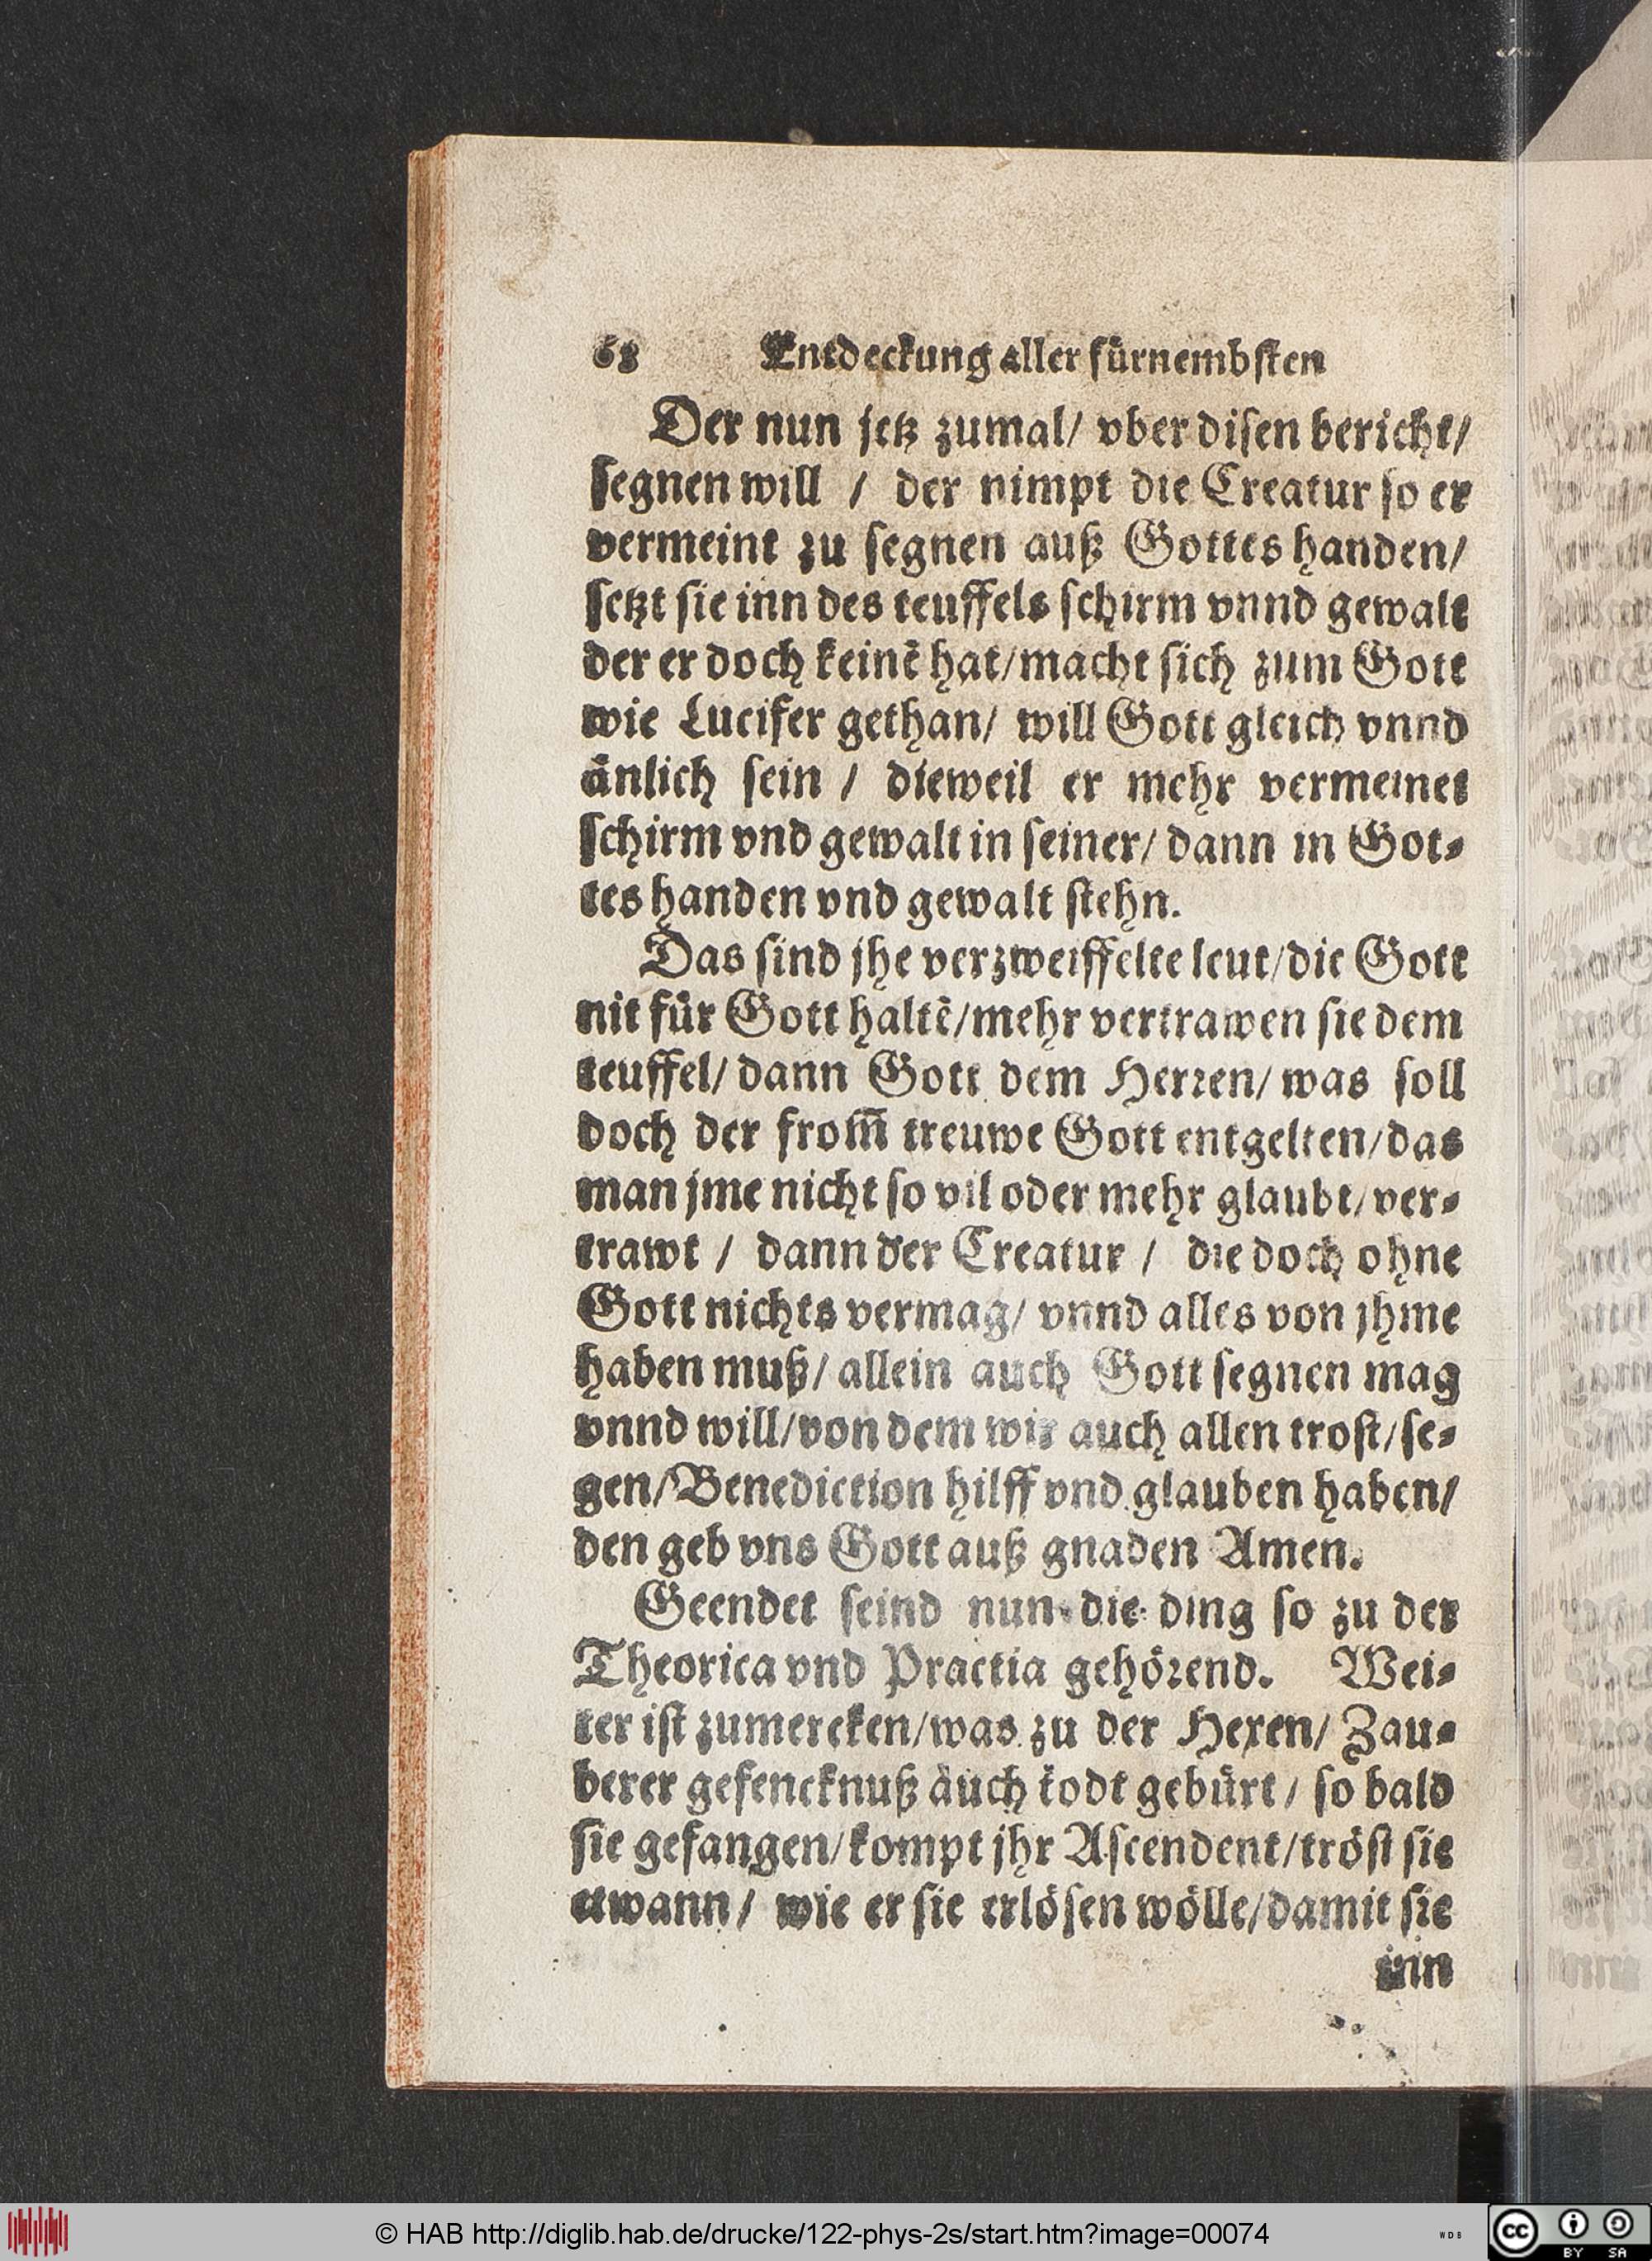 68 Entdeckung aller fürnembsten
Der nun jetz zumal/ vber disen bericht/
segnen will / der nimpt die Creatur so er
vermeint zu segnen auß Gottes handen/
setzt sie inn des teuffels schirm vnnd gewalt
der er doch keinẽ hat/macht sich zum Gott
wie Lucifer gethan/ will Gott gleich vnnd
änlich sein / dieweil er mehr vermeinet
schirm vnd gewalt in seiner/ dann in Got⸗
tes handen vnd gewalt stehn.
Das sind jhe verzweiffelte leut/die Gott
nit für Gott haltẽ/mehr vertrawen sie dem
teuffel/ dann Gott dem Herren/ was soll
doch der from̃ treuwe Gott entgelten/das
man jme nicht so vil oder mehr glaubt/ver⸗
trawt / dann der Creatur / die doch ohne
Gott nichts vermag/ vnnd alles von jhme
haben muß/ allein auch Gott segnen mag
vnnd will/von dem wir auch allen trost/se⸗
gen/Benediction hilff vnd glauben haben/
den geb vns Gott auß gnaden Amen.
Geendet seind nun die ding so zu der
Theorica vnd Practia gehörend. Wei⸗
ter ist zumercken/was zu der Hexen/ Zau⸗
berer gefencknuß auch todt gebürt / so bald
sie gefangen/kompt jhr Ascendent/tröst sie
etwann/ wie er sie erlösen wölle/damit sie
inn
© HAB http://diglib.hab.de/drucke/122-phys-2s/start.htm?image=00074
WDB
cc
BY SA